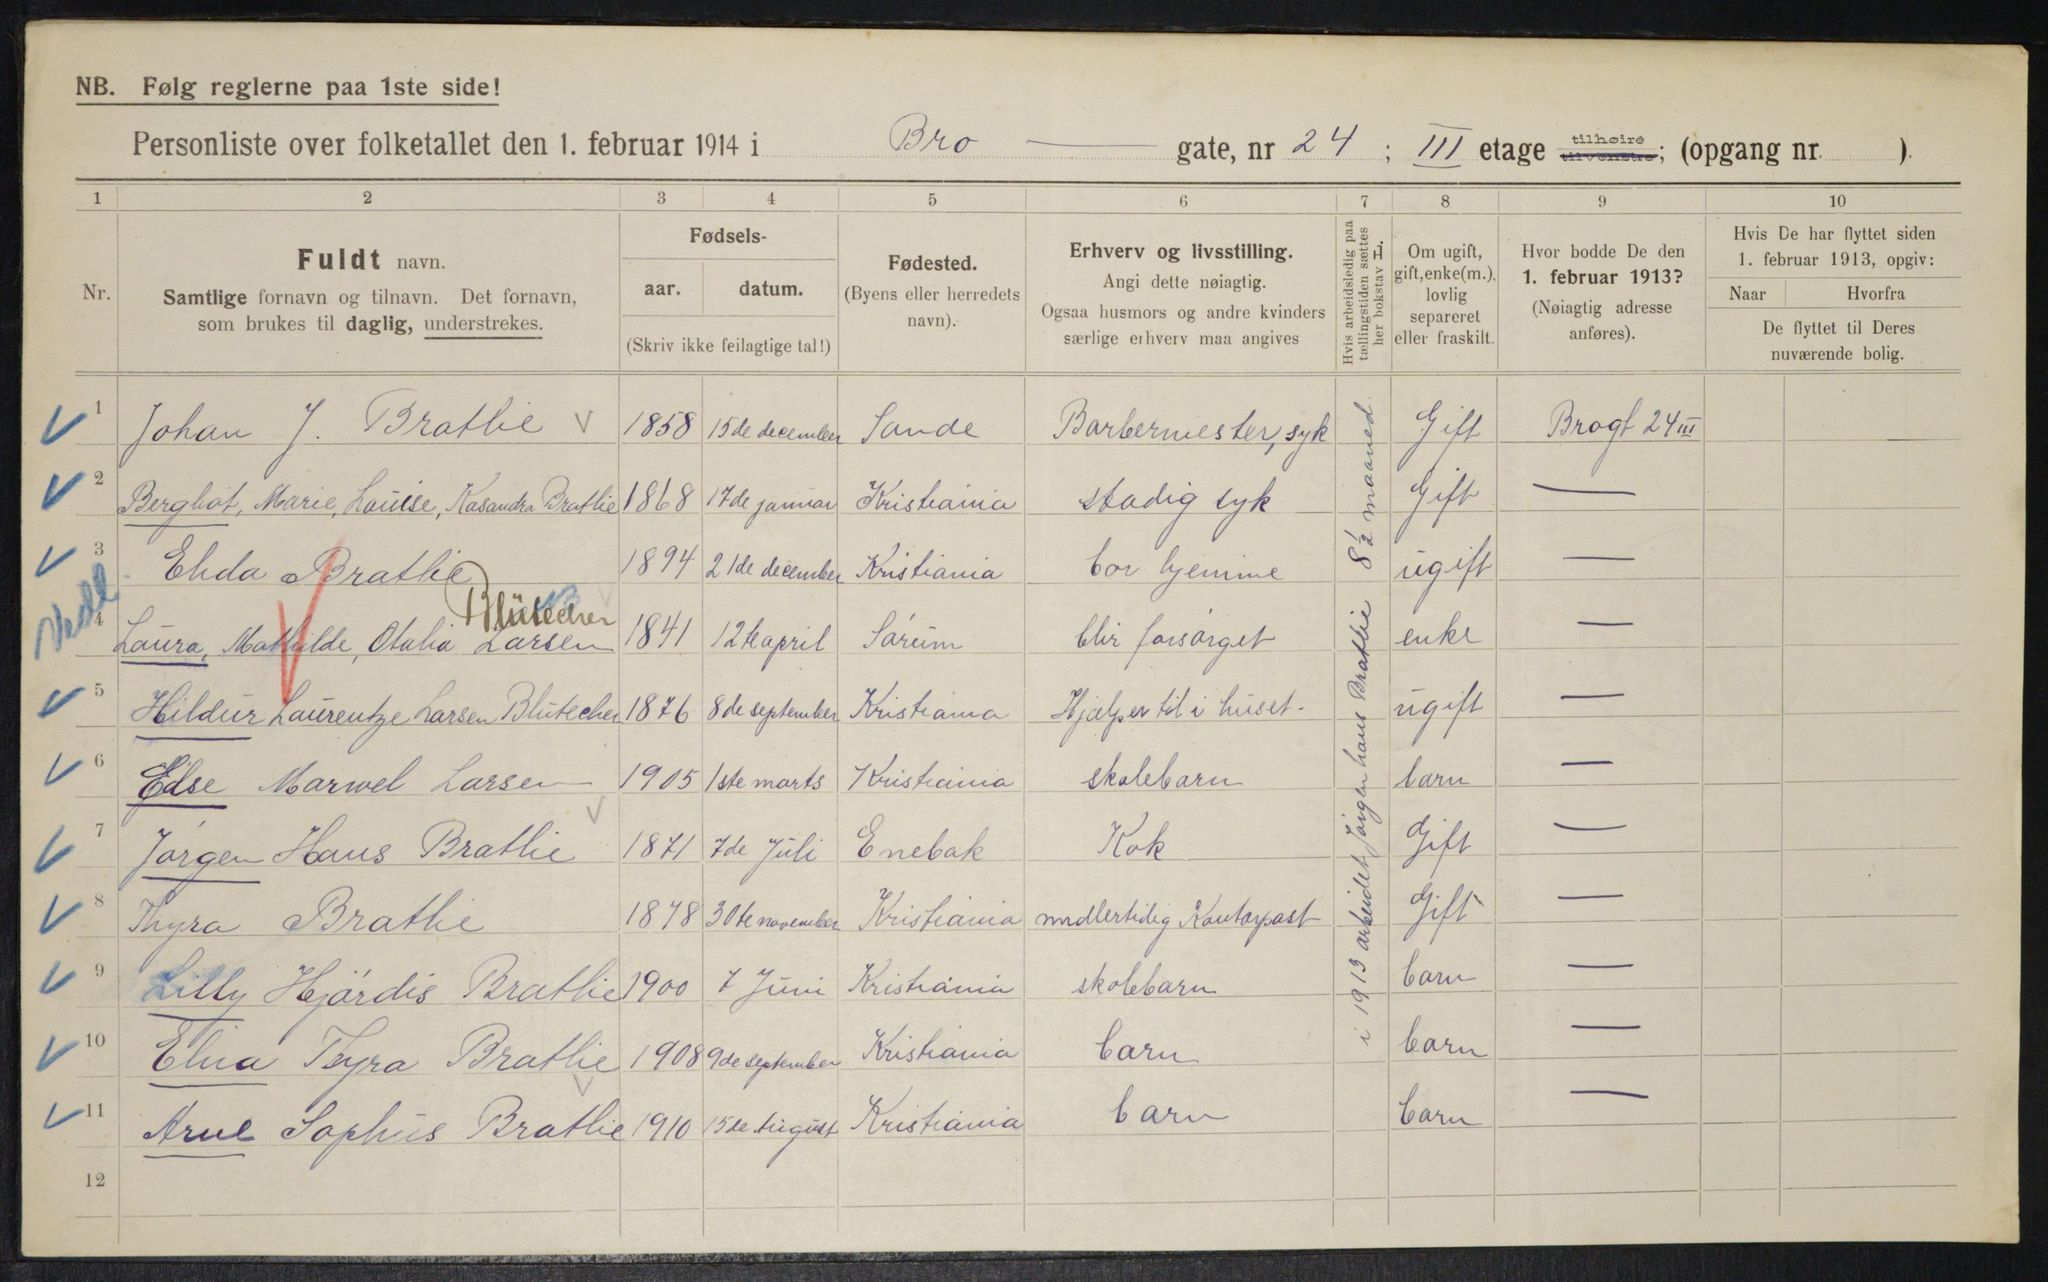 NB. Følg reglerne paa 1ste side!
Personliste over folketallet den 1. februar 1914 i Bro gate, nr 24 ; III etage tilhøire tilvenstre; (opgang nr. ).
1 2 3 4 5 6 7 8 9 10
Nr.
Fuldt navn.
Samtlige fornavn og tilnavn. Det fornavn,
som brukes til daglig, understrekes.
Fødsels-
aar. datum.
(Skriv ikke feilagtige tal!)
Fødested.
(Byens eller herredets
navn).
Erhverv og livsstilling.
Angi dette nøiagtig.
Ogsaa husmors og andre kvinders
særlige erhverv maa angives
Hvis arbeidsledig paa
tællingstiden sættes
her bokstav L.
Om ugift,
gift, enke(m.),
lovlig
separeret
eller fraskilt.
Hvor bodde De den
1. februar 1913?
(Nøiagtig adresse
anføres).
Hvis De har flyttet siden
1. februar 1913, opgiv:
Naar Hvorfra
De flyttet til Deres
nuværende bolig.
1 Johan J. Bratlie 1858 15de december Sande Barbermester, syk Gift Brogt 24 III
2 Bergliot, Marie, Louise, Kasandra Bratlie 1868 17de januar Kristiania stadig syk Gift —
3 Elida Bratlie 1894 21de december Kristiania bor hjemme ugift —
Blütecher
4 Laura, Mathilde, Otalia Larsen 1841 12te april Sørum blir forsørget enke —
5 Hildur Laurentze Larsen Blütecher 1876 8de september Kristiania Hjælper til i huset. ugift —
6 Else Marwel Larsen 1905 1ste marts Kristiania skolebarn barn —
7 Jørgen Hans Bratlie 1871 7de Juli Enebak Kok Gift —
8 Thyra Bratlie 1878 30te november Kristiania midlertidig Kontorpost Gift —
9 Lilly Hjørdis Bratlie 1900 7 Juni Kristiania skolebarn barn —
10 Elna Tyra Bratlie 1908 9de september Kristiania barn barn —
11 Arne Sophus Bratlie 1910 15de August Kristiania barn barn —
12
i 1913 arbeidet Jørgen hans Bratlie 8½ maaned